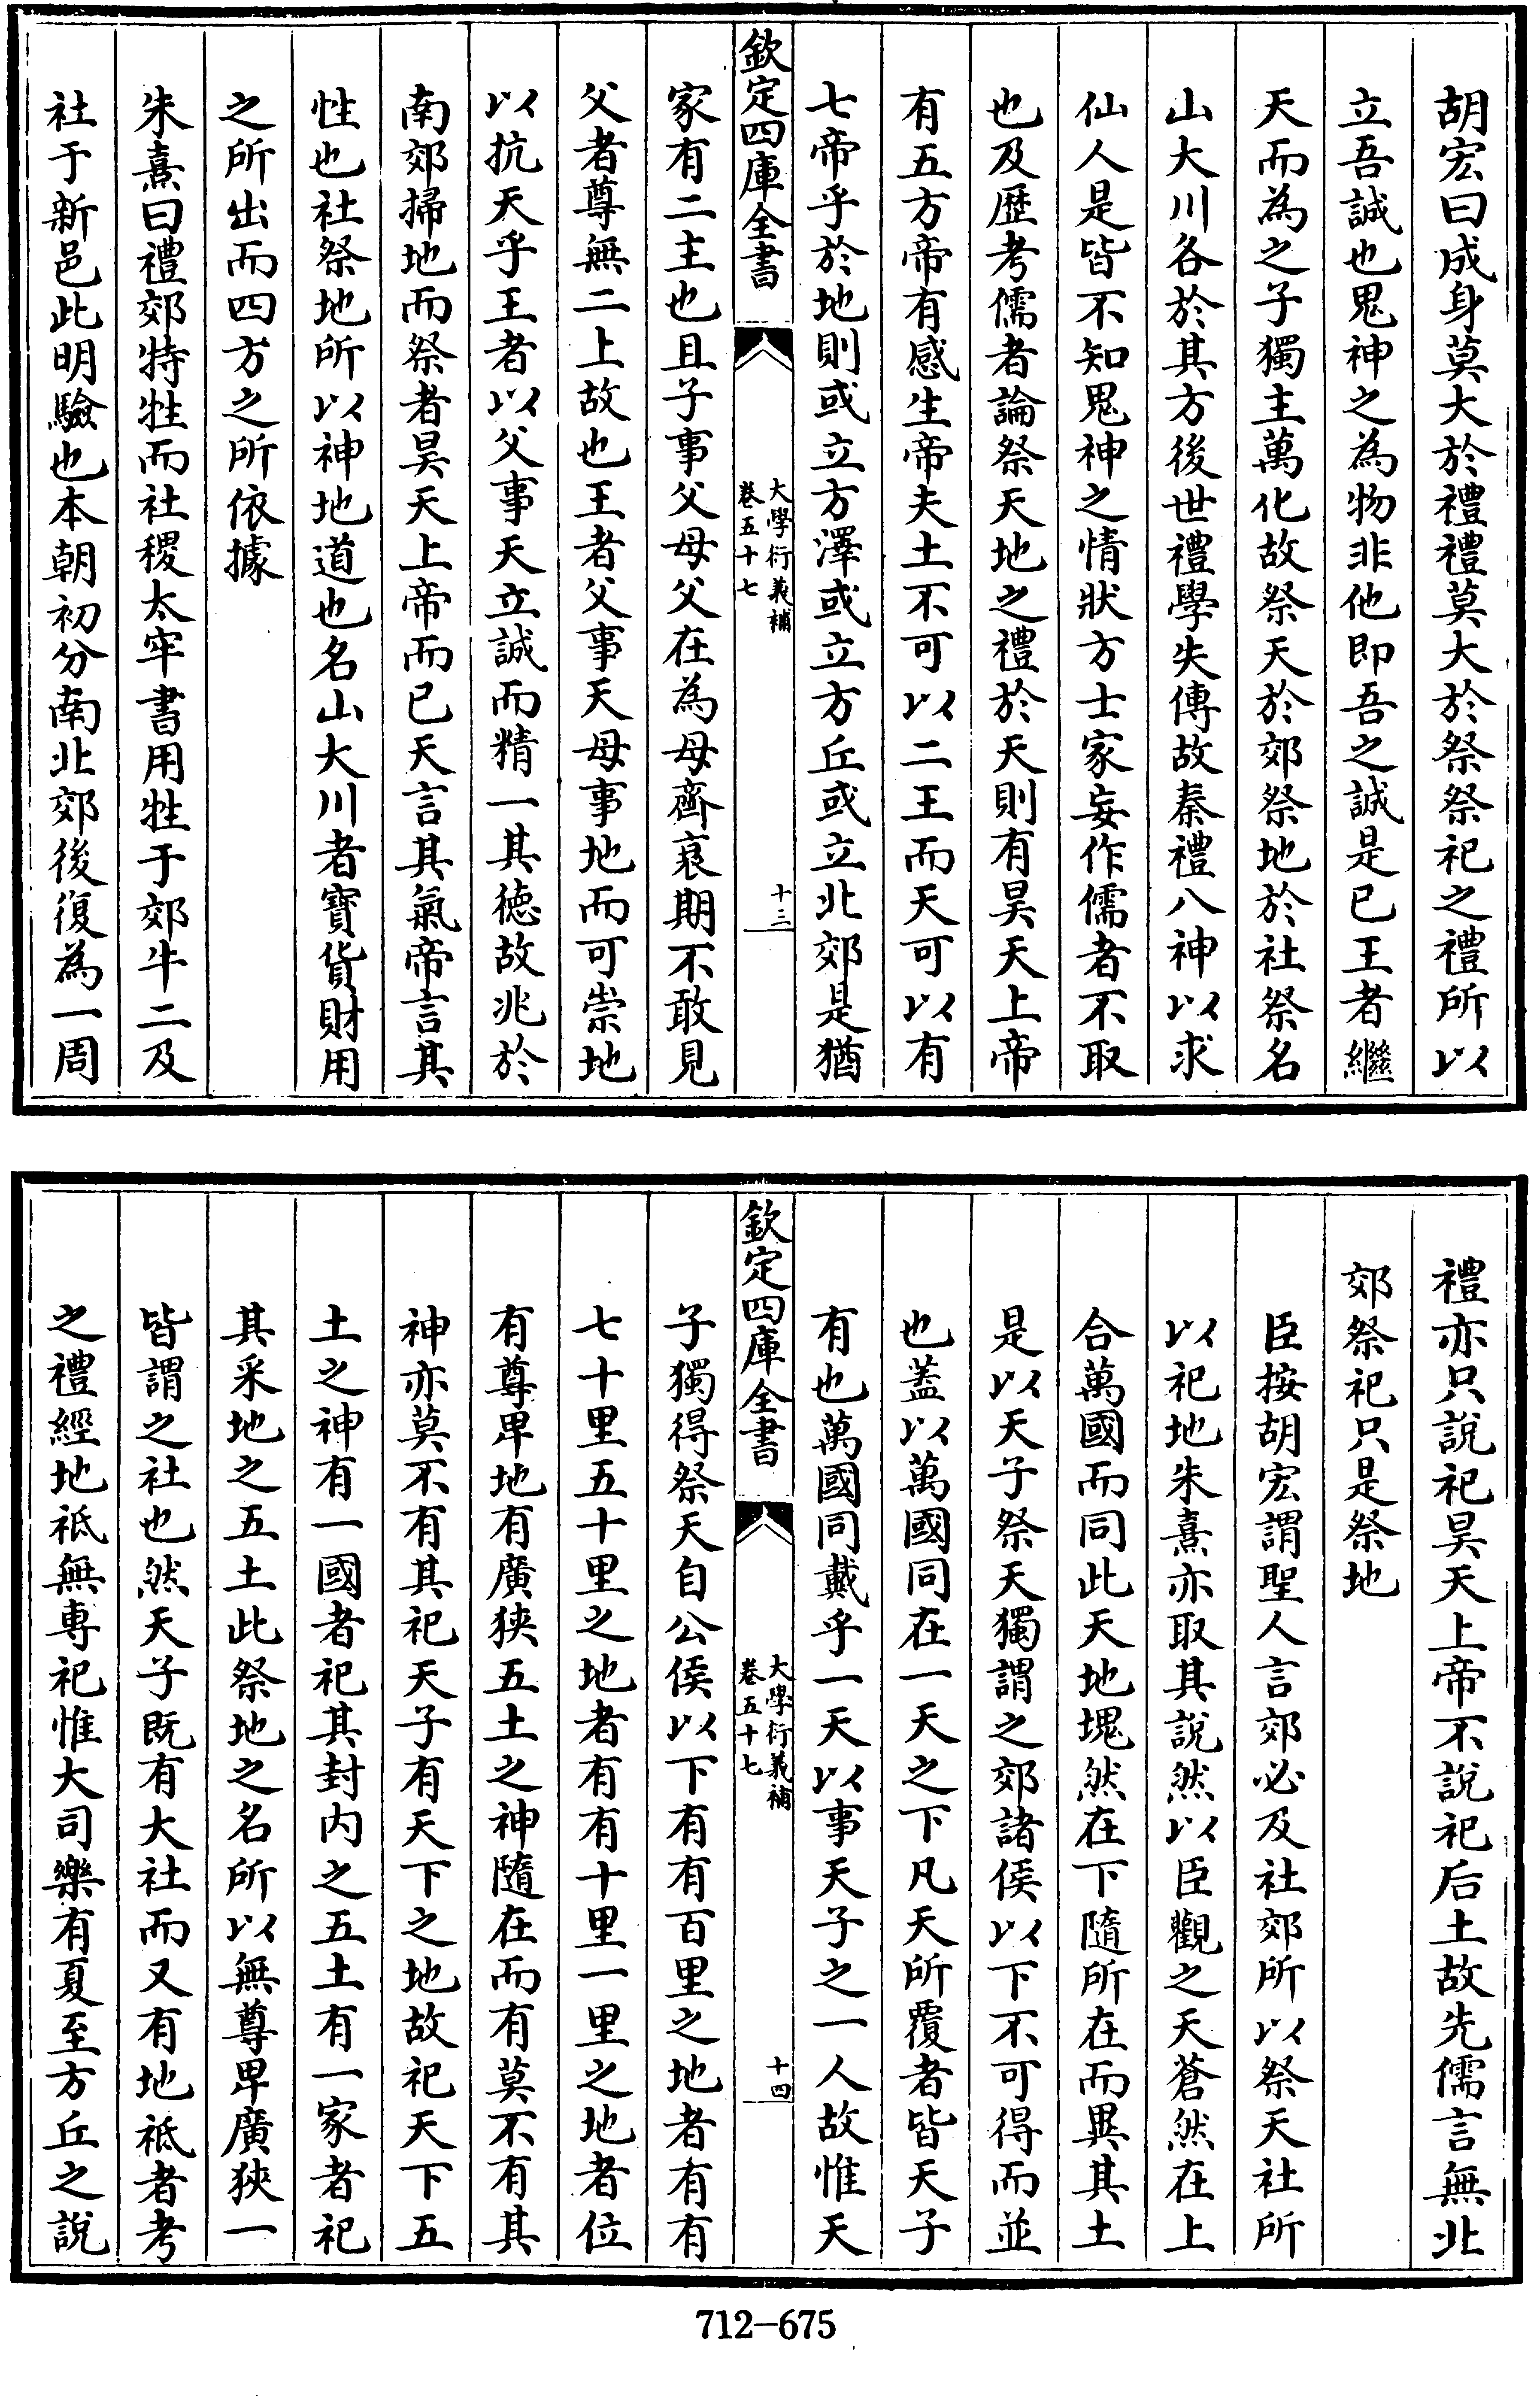 胡宏曰成身莫大於禮禮莫大於祭祭祀之禮所以
立吾誠也鬼神之為物非他即吾之誠是已王者繼
天而為之子獨主萬化故祭天於郊祭地於社祭名
山大川各於其方後世禮學失傳故秦禮八神以求
仙人是皆不知鬼神之情狀方士家妄作儒者不取
也及歴考儒者論祭天地之禮於天則有昊天上帝
有五方帝有感生帝夫土不可以二王而天可以有
七帝乎於地則或立方澤或立方丘或立北郊是猶
欽定四庫全書
大學衍義補
卷五十七
十三
家有二主也且子事父母父在為母齊衰期不敢見
父者尊無二上故也王者父事天母事地而可崇地
以抗天乎王者以父事天立誠而精一其徳故兆於
南郊掃地而祭者昊天上帝而已天言其氣帝言其
性也社祭地所以神地道也名山大川者寶貨財用
之所出而四方之所依據
朱熹曰禮郊特牲而社稷太牢書用牲于郊牛二及
社于新邑此明驗也本朝初分南北郊後復為一周
禮亦只說祀昊天上帝不說祀后土故先儒言無北
郊祭祀只是祭地
臣按胡宏謂聖人言郊必及社郊所以祭天社所
以祀地朱熹亦取其說然以臣觀之天蒼然在上
合萬國而同此天地塊然在下隨所在而異其土
是以天子祭天獨謂之郊諸侯以下不可得而並
也蓋以萬國同在一天之下凡天所覆者皆天子
有也萬國同戴乎一天以事天子之一人故惟天
欽定四庫全書
大學衍義補
卷五十七
十四
子獨得祭天自公侯以下有有百里之地者有有
七十里五十里之地者有有十里一里之地者位
有尊卑地有廣狹五土之神隨在而有莫不有其
神亦莫不有其祀天子有天下之地故祀天下五
土之神有一國者祀其封内之五土有一家者祀
其采地之五土此祭地之名所以無尊卑廣狹一
皆謂之社也然天子既有大社而又有地祇者考
之禮經地祇無專祀惟大司樂有夏至方丘之說
712-675